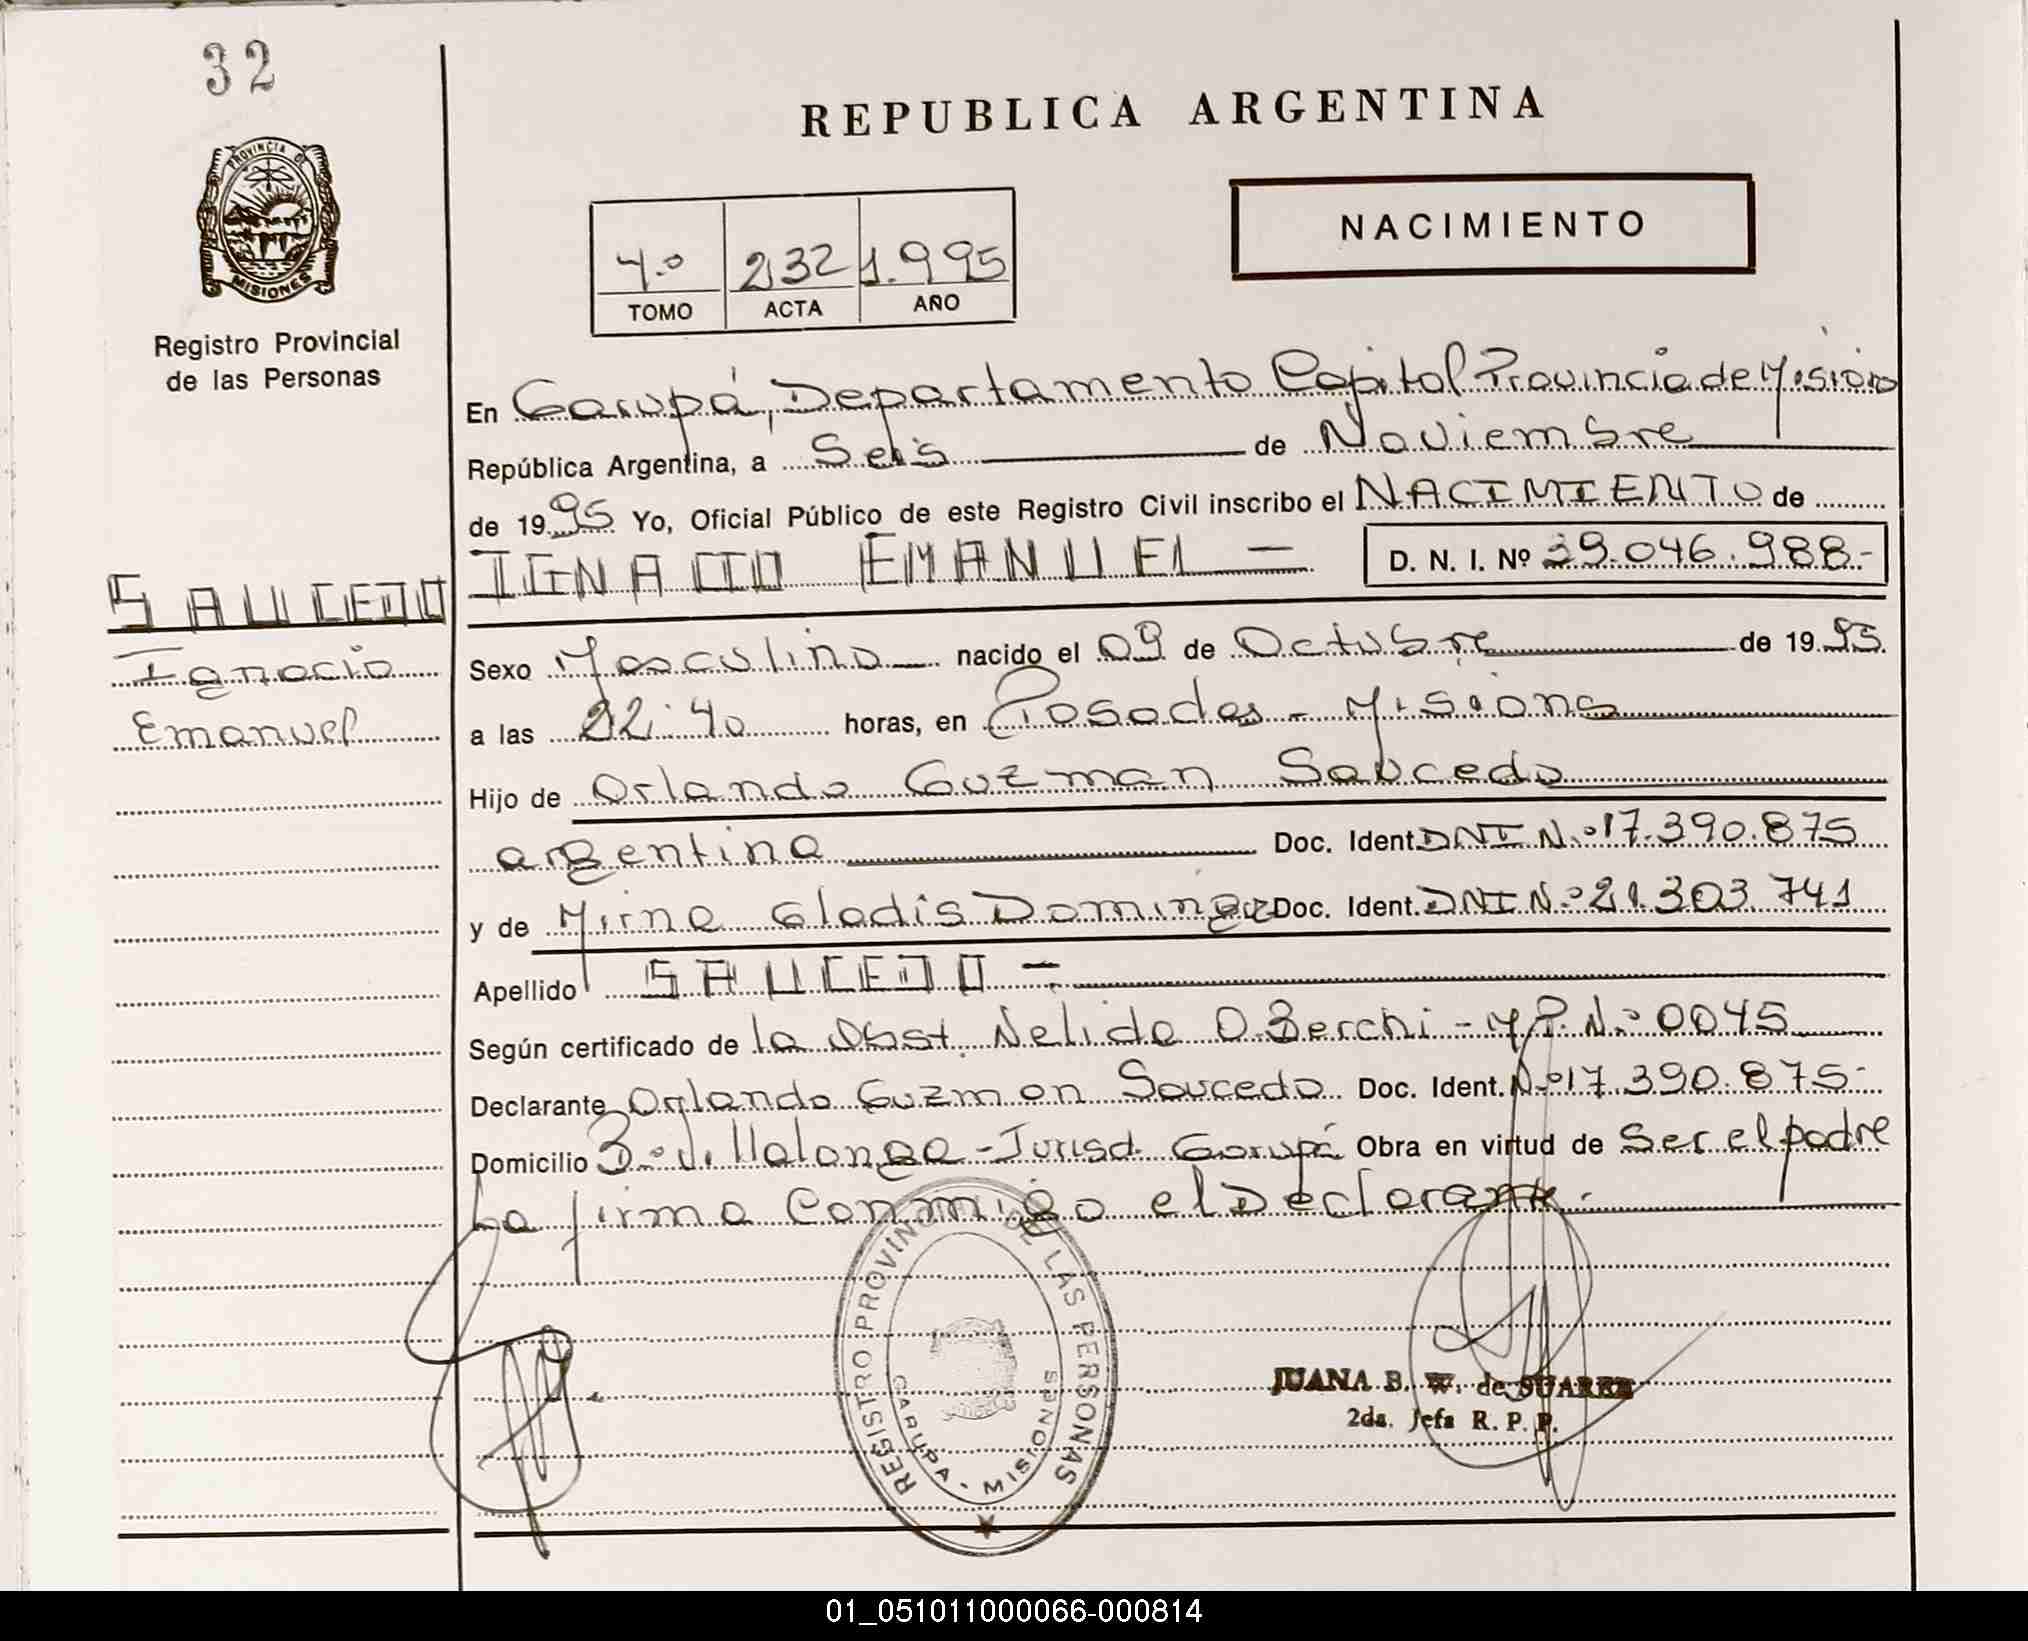 32
PROVINCIA DE
MISIONES
Registro Provincial
de las Personas
SAUCEDO
Ignacio
Emanuel
REPUBLICA ARGENTINA
NACIMIENTO
4.º 232 1.995
TOMO ACTA AÑO
En Garupá, Departamento Capital Provincia de Misiones
República Argentina, a Seis de Noviembre
de 1995 Yo, Oficial Público de este Registro Civil inscribo el NACIMIENTO de
IGNACIO EMANUEL = D. N. I. Nº 39.046.988-
Sexo Masculino nacido el 09 de Octubre de 1995.
a las 22:40 horas, en Posadas - Misiones
Hijo de Orlando Guzman Saucedo
argentina Doc. Ident. DNI N.º 17.390.875
y de Mirna Gladis Dominguez Doc. Ident. DNI N.º 21.303.741
Apellido SAUCEDO =
Según certificado de la Obst. Nelida O. Berchi - M.P. N.º 0045
Declarante Orlando Guzman Saucedo Doc. Ident. Nº 17.390.875-
Domicilio Bº Villalonga - Jurisd. Garupá Obra en virtud de Ser el padre
La firma Conmigo el Declarante.
REGISTRO PROVINCIAL DE LAS PERSONAS
GARUPA - MISIONES
JUANA B. W. de SUAREZ
2da. Jefa R. P. P.
01_051011000066-000814